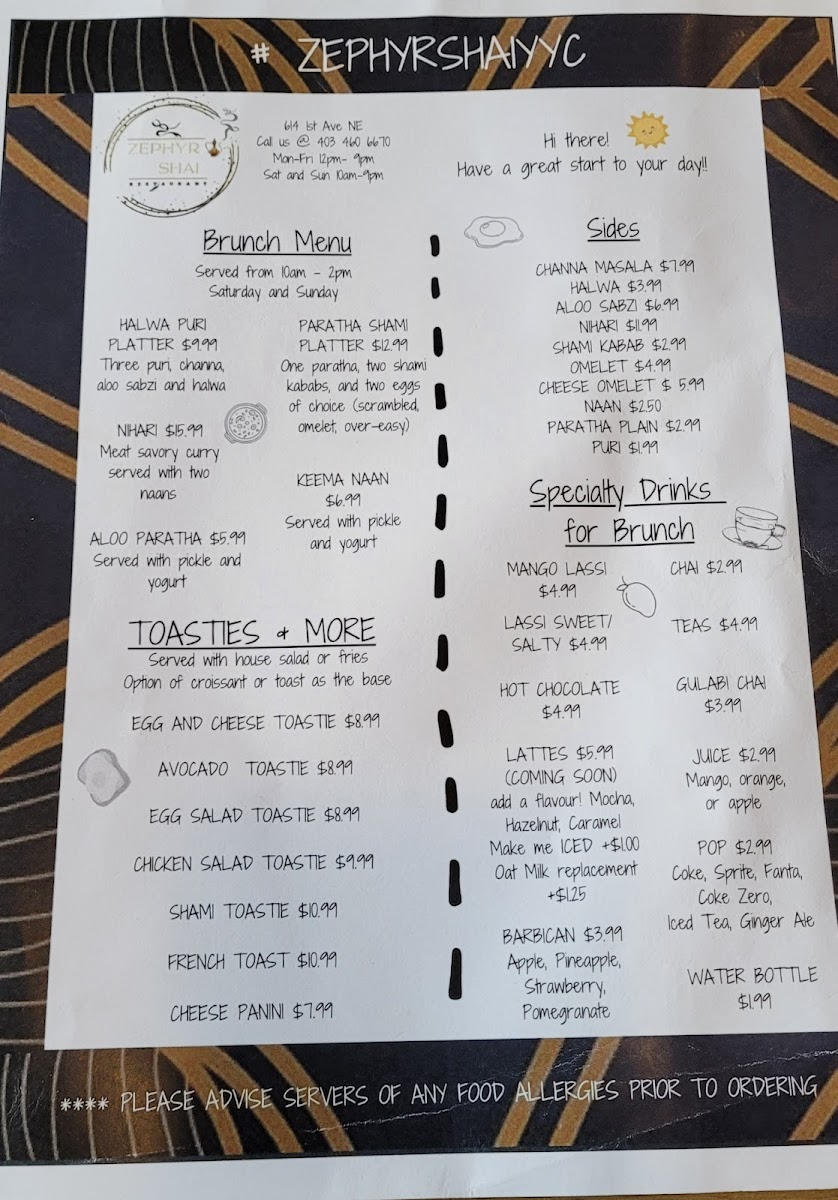 # ZEPHYRSHAIYYC
ZEPHYR
SHAI
RESTAURANT
614 1st Ave NE
Call us @ 403 460 6670
Mon-Fri 12pm- 9pm
Sat and Sun 10am-9pm
Hi there!
Have a great start to your day!!
Brunch Menu
Served from 10am - 2pm
Saturday and Sunday
HALWA PURI
PLATTER $9.99
Three puri, channa,
aloo sabzi and halwa
NIHARI $15.99
Meat savory curry
served with two
naans
ALOO PARATHA $5.99
Served with pickle and
yogurt
PARATHA SHAMI
PLATTER $12.99
One paratha, two shami
kababs, and two eggs
of choice (scrambled,
omelet, over-easy)
KEEMA NAAN
$6.99
Served with pickle
and yogurt
TOASTIES & MORE
Served with house salad or fries
Option of croissant or toast as the base
EGG AND CHEESE TOASTIE $8.99
AVOCADO TOASTIE $8.99
EGG SALAD TOASTIE $8.99
CHICKEN SALAD TOASTIE $9.99
SHAMI TOASTIE $10.99
FRENCH TOAST $10.99
CHEESE PANINI $7.99
Sides
CHANNA MASALA $7.99
HALWA $3.99
ALOO SABZI $6.99
NIHARI $11.99
SHAMI KABAB $2.99
OMELET $4.99
CHEESE OMELET $ 5.99
NAAN $2.50
PARATHA PLAIN $2.99
PURI $1.99
Specialty Drinks
for Brunch
MANGO LASSI
$4.99
LASSI SWEET/
SALTY $4.99
HOT CHOCOLATE
$4.99
LATTES $5.99
(COMING SOON)
add a flavour! Mocha,
Hazelnut, Caramel
Make me ICED +$1.00
Oat Milk replacement
+$1.25
BARBICAN $3.99
Apple, Pineapple,
Strawberry,
Pomegranate
CHAI $2.99
TEAS $4.99
GULABI CHAI
$3.99
JUICE $2.99
Mango, orange,
or apple
POP $2.99
Coke, Sprite, Fanta,
Coke Zero,
Iced Tea, Ginger Ale
WATER BOTTLE
$1.99
**** PLEASE ADVISE SERVERS OF ANY FOOD ALLERGIES PRIOR TO ORDERING